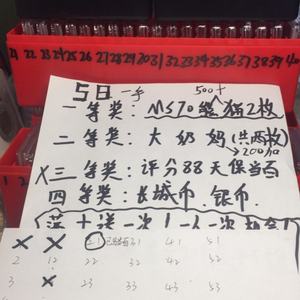 21 22 23 24 25 26 27 28 29 30 31 32 33 34 35 36 37 38 39 40
5日 一手 500+
一等奖: MS70 熊猫2枚
二等奖: 大奶妈 (共两枚)
→200加
X三等奖: 评分88天保当百
四等奖: 长城币. 银币.
满十送一次
X X 21 31 41 51
2 12 22 32 42 52
3 X 23 33 43 53